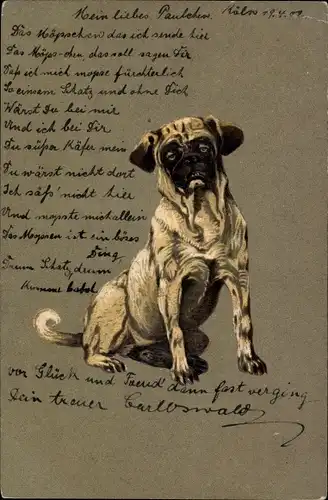 Mein liebes Paulchen. Köln 19.4.00
Das Möpschen das ich sende hier
Das Möps-chen das soll sagen Dir
Daß ich mich mopse fürchterlich
So einsam Schatz und ohne Dich
Wärst Du bei mir
Und ich bei Dir
Du süßer Käfer mein
Du wärst nicht dort
Ich säß' nicht hier
Und mopste mich allein
Das Mopsen ist ein böses
Ding
Drum Schatz drum
komme bald
vor Glück und Freud dann fast verging
Dein treuer Carl Oswald